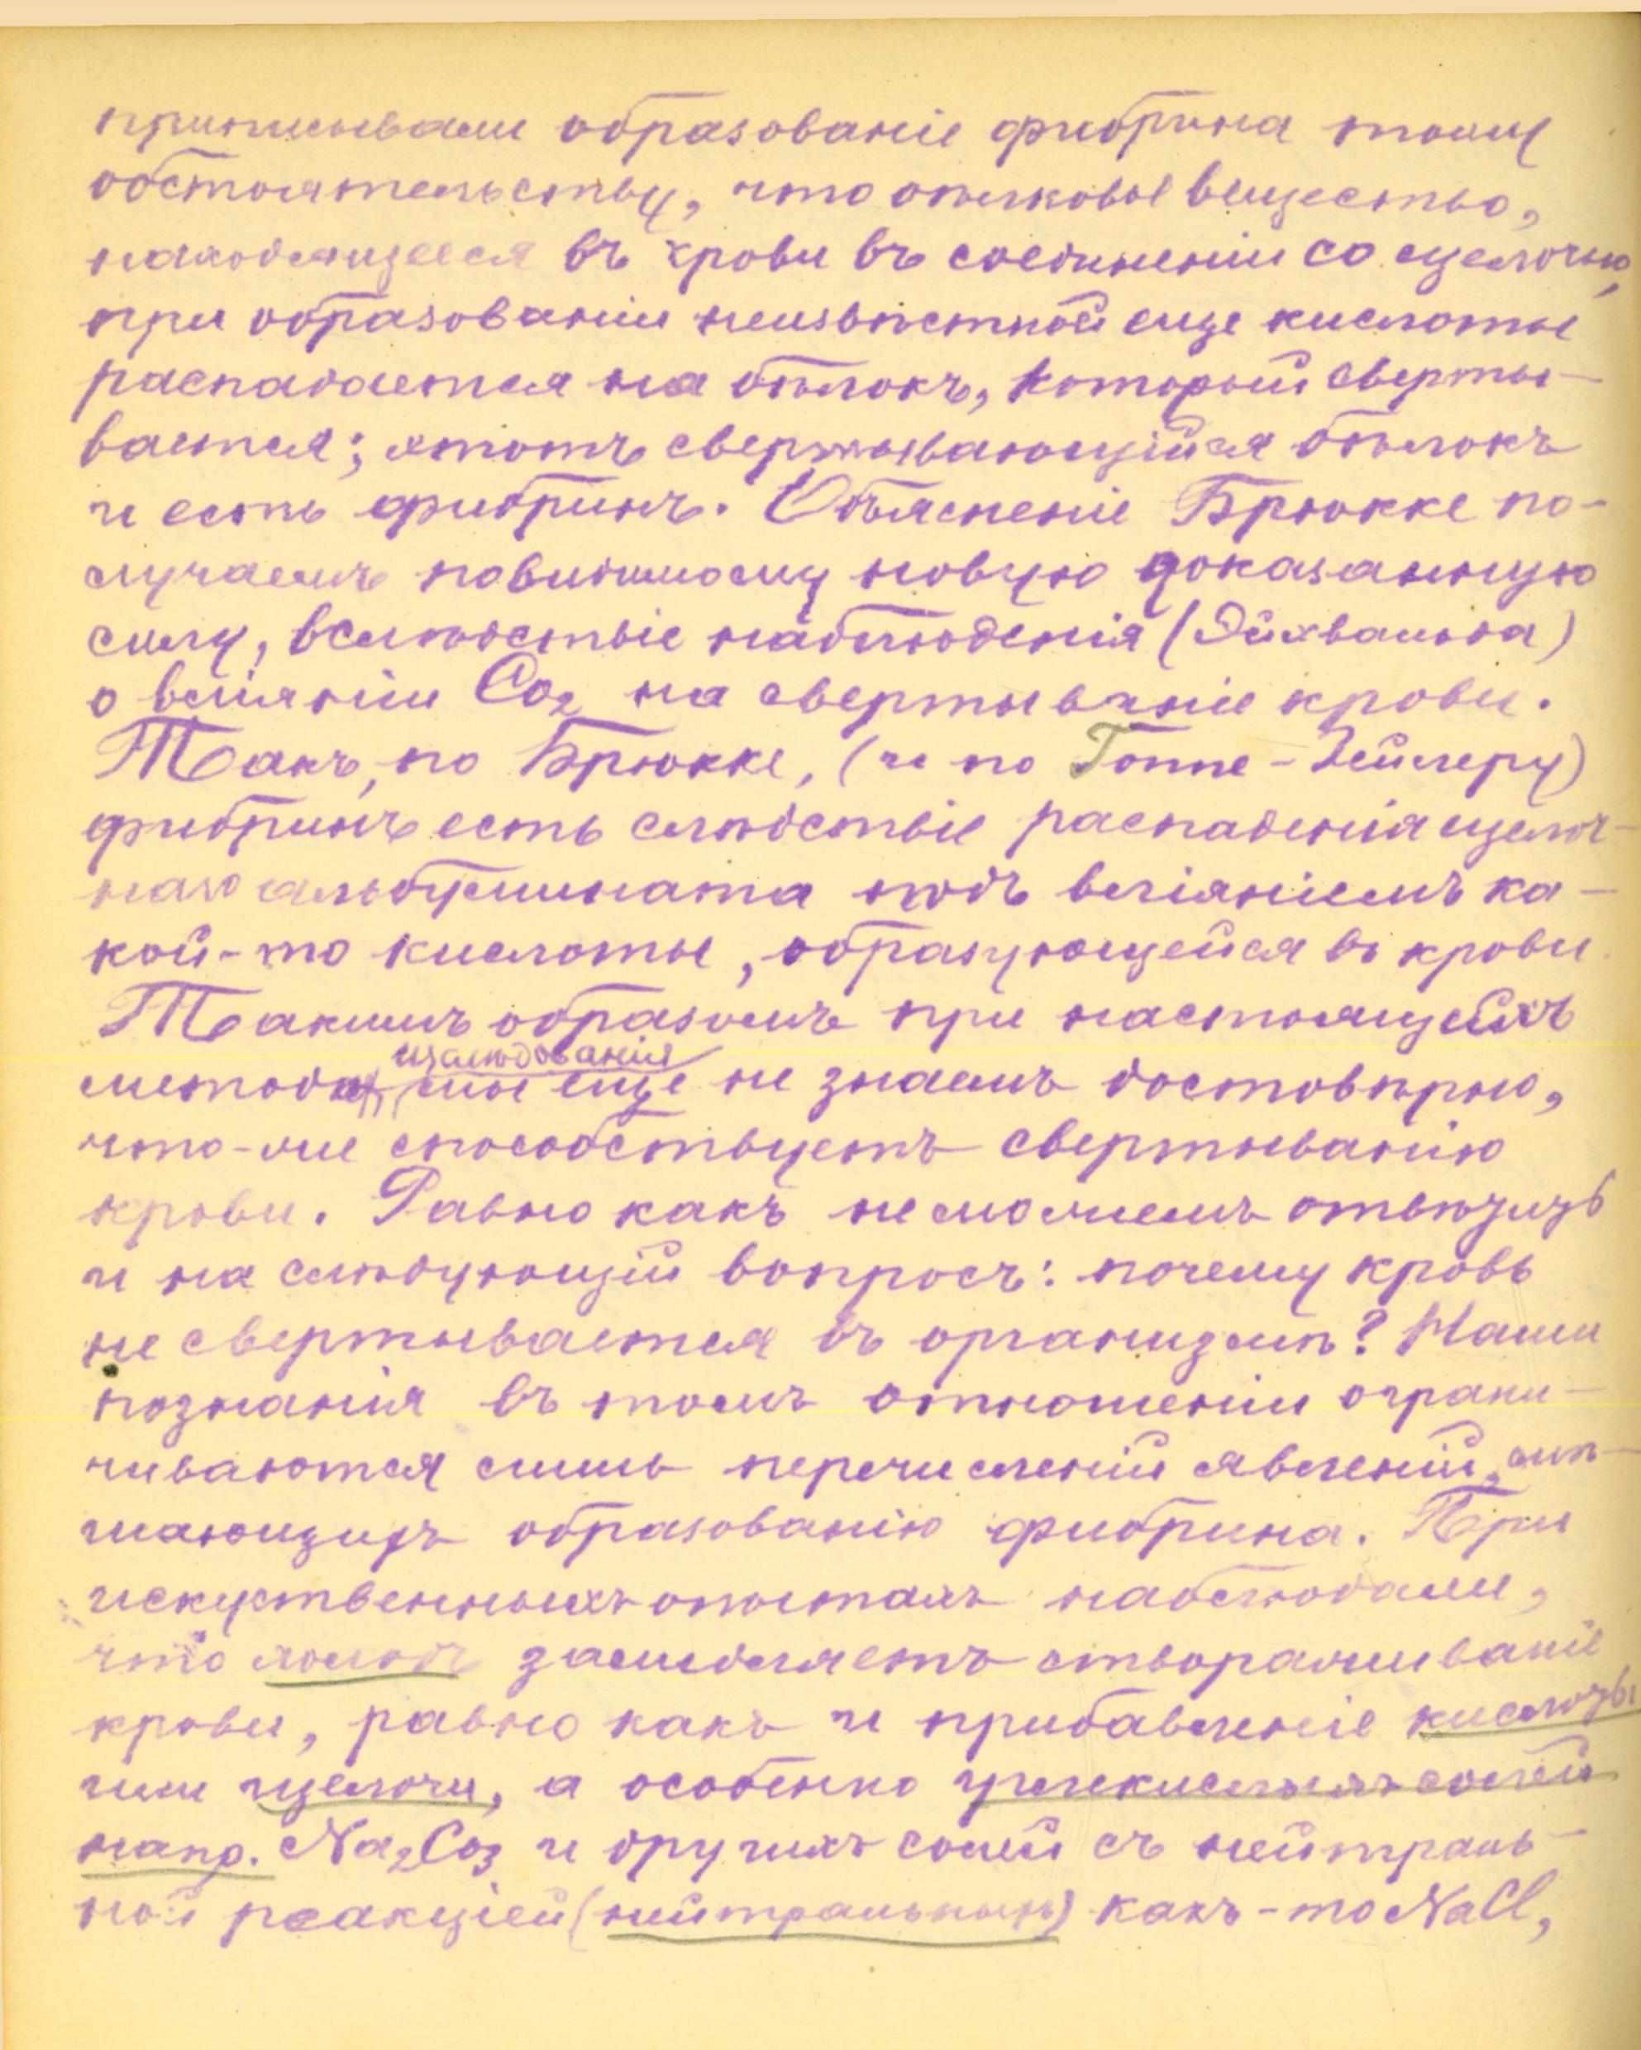 приписывали образованіе фибрина тому
обстоятельству, что бѣлковое вещество,
находящееся въ крови въ соединеніи со щелочью,
при образованіи неизвѣстной еще кислоты
распадается на бѣлокъ, который сверты-
вается; этотъ свертывающійся бѣлокъ
и есть фибринъ. Объясненіе Брюкке по-
лучаетъ повидимому новую доказанную
силу, вслѣдствіе наблюденія (Эйхвальда)
о вліяніи Co2 на свертываніе крови.
Такъ, по Брюкке, (и по Гоппе-Зейлеру)
фибринъ есть слѣдствіе распаденія щелоч-
наго альбумината подъ вліяніемъ ка-
кой-то кислоты, образующейся въ крови
Такимъ образомъ при настоящихъ
изслѣдованія
методах мы еще не знаемъ достовѣрно,
что-же способствуетъ свертыванію
крови. Равно какъ не можемъ отвѣтить
и на слѣдующій вопросъ: почему кровь
не свертывается въ организмѣ? Наши
познанія въ томъ отношеніи ограни-
чиваются лишь перечисленій явленій, мѣ-
шающихъ образованію фибрина. При
искуственныхъ опытахъ наблюдали,
что холодъ замедляетъ створаживаніе
крови, равно какъ и прибавленіе кислоты
или щелочи, а особенно углекислыхъ солей
напр. Na2Co3 и другихъ солей съ нейтраль-
ной реакціей (нейтральныхъ) какъ-то NaCl,